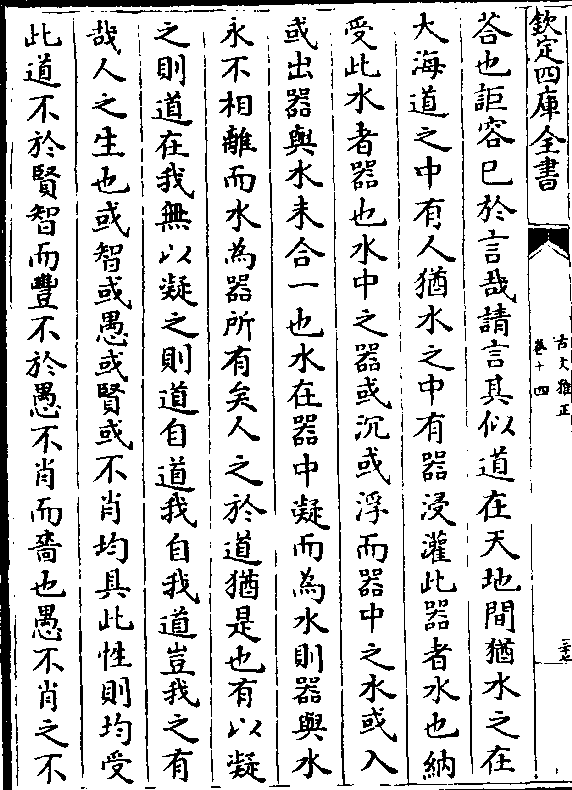 欽定四庫全書
古文雅正
卷十四
荅也詎容已於言哉請言其似道在天地間猶水之在
大海道之中有人猶水之中有器浸灌此器者水也納
受此水者器也水中之器或沉或浮而器中之水或入
或出器與水未合一也水在器中凝而為冰則器與水
永不相離而水為器所有矣人之於道猶是也有以凝
之則道在我無以凝之則道自道我自我道豈我之有
哉人之生也或智或愚或賢或不肖均具此性則均受
此道不於賢智而豐不於愚不肖而嗇也愚不肖之不